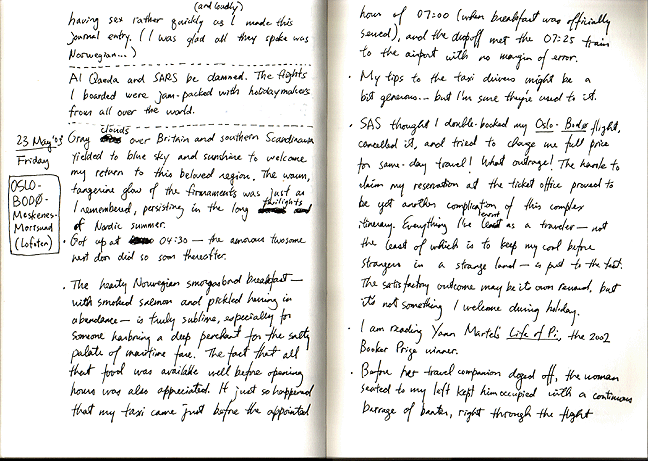 (and loudly)
having sex rather quickly as I made this
journal entry. (I was glad all they spoke was
Norwegian...)
Al Qaeda and SARS be damned. The flights
I boarded were jam-packed with holidaymakers
from all over the world.
23 May '03
Friday
OSLO-
BODØ-
Moskenes-
Mortsund
(Lofoten)
clouds
Gray over Britain and southern Scandinavia
yielded to blue sky and sunshine to welcome
my return to this beloved region. The warm,
tangerine glow of the firmaments was just as
I remembered, persisting in the long twilights
of Nordic summer.
• Got up at 04:30 — the amorous twosome
next door did so soon thereafter.
• The hearty Norwegian smorgasbord breakfast —
with smoked salmon and pickled herring in
abundance — is truly sublime, especially for
someone harboring a deep penchant for the salty
palate of maritime fare. The fact that all
that food was available well before opening
hours was also appreciated. It just so happened
that my taxi came just before the appointed
hour of 07:00 (when breakfast was officially
served), and the dropoff met the 07:25 train
to the airport with no margin of error.
• My tips to the taxi drivers might be a
bit generous... but I'm sure they're used to it.
• SAS thought I double-booked my Oslo-Bodø flight,
cancelled it, and tried to charge me full price
for same-day travel! What outrage! The hassle to
claim my reservation at the ticket office proved to
be yet another complication of this complex
itinerary. Everything I've learnt as a traveler — not
the least of which is to keep my cool before
strangers in a strange land — is put to the test.
The satisfactory outcome may be its own reward, but
it's not something I welcome during holiday.
• I am reading Yann Martel's Life of Pi, the 2002
Booker Prize winner.
• Before her travel companion dozed off, the woman
seated to my left kept him occupied with a continuous
barrage of banter, right through the flight